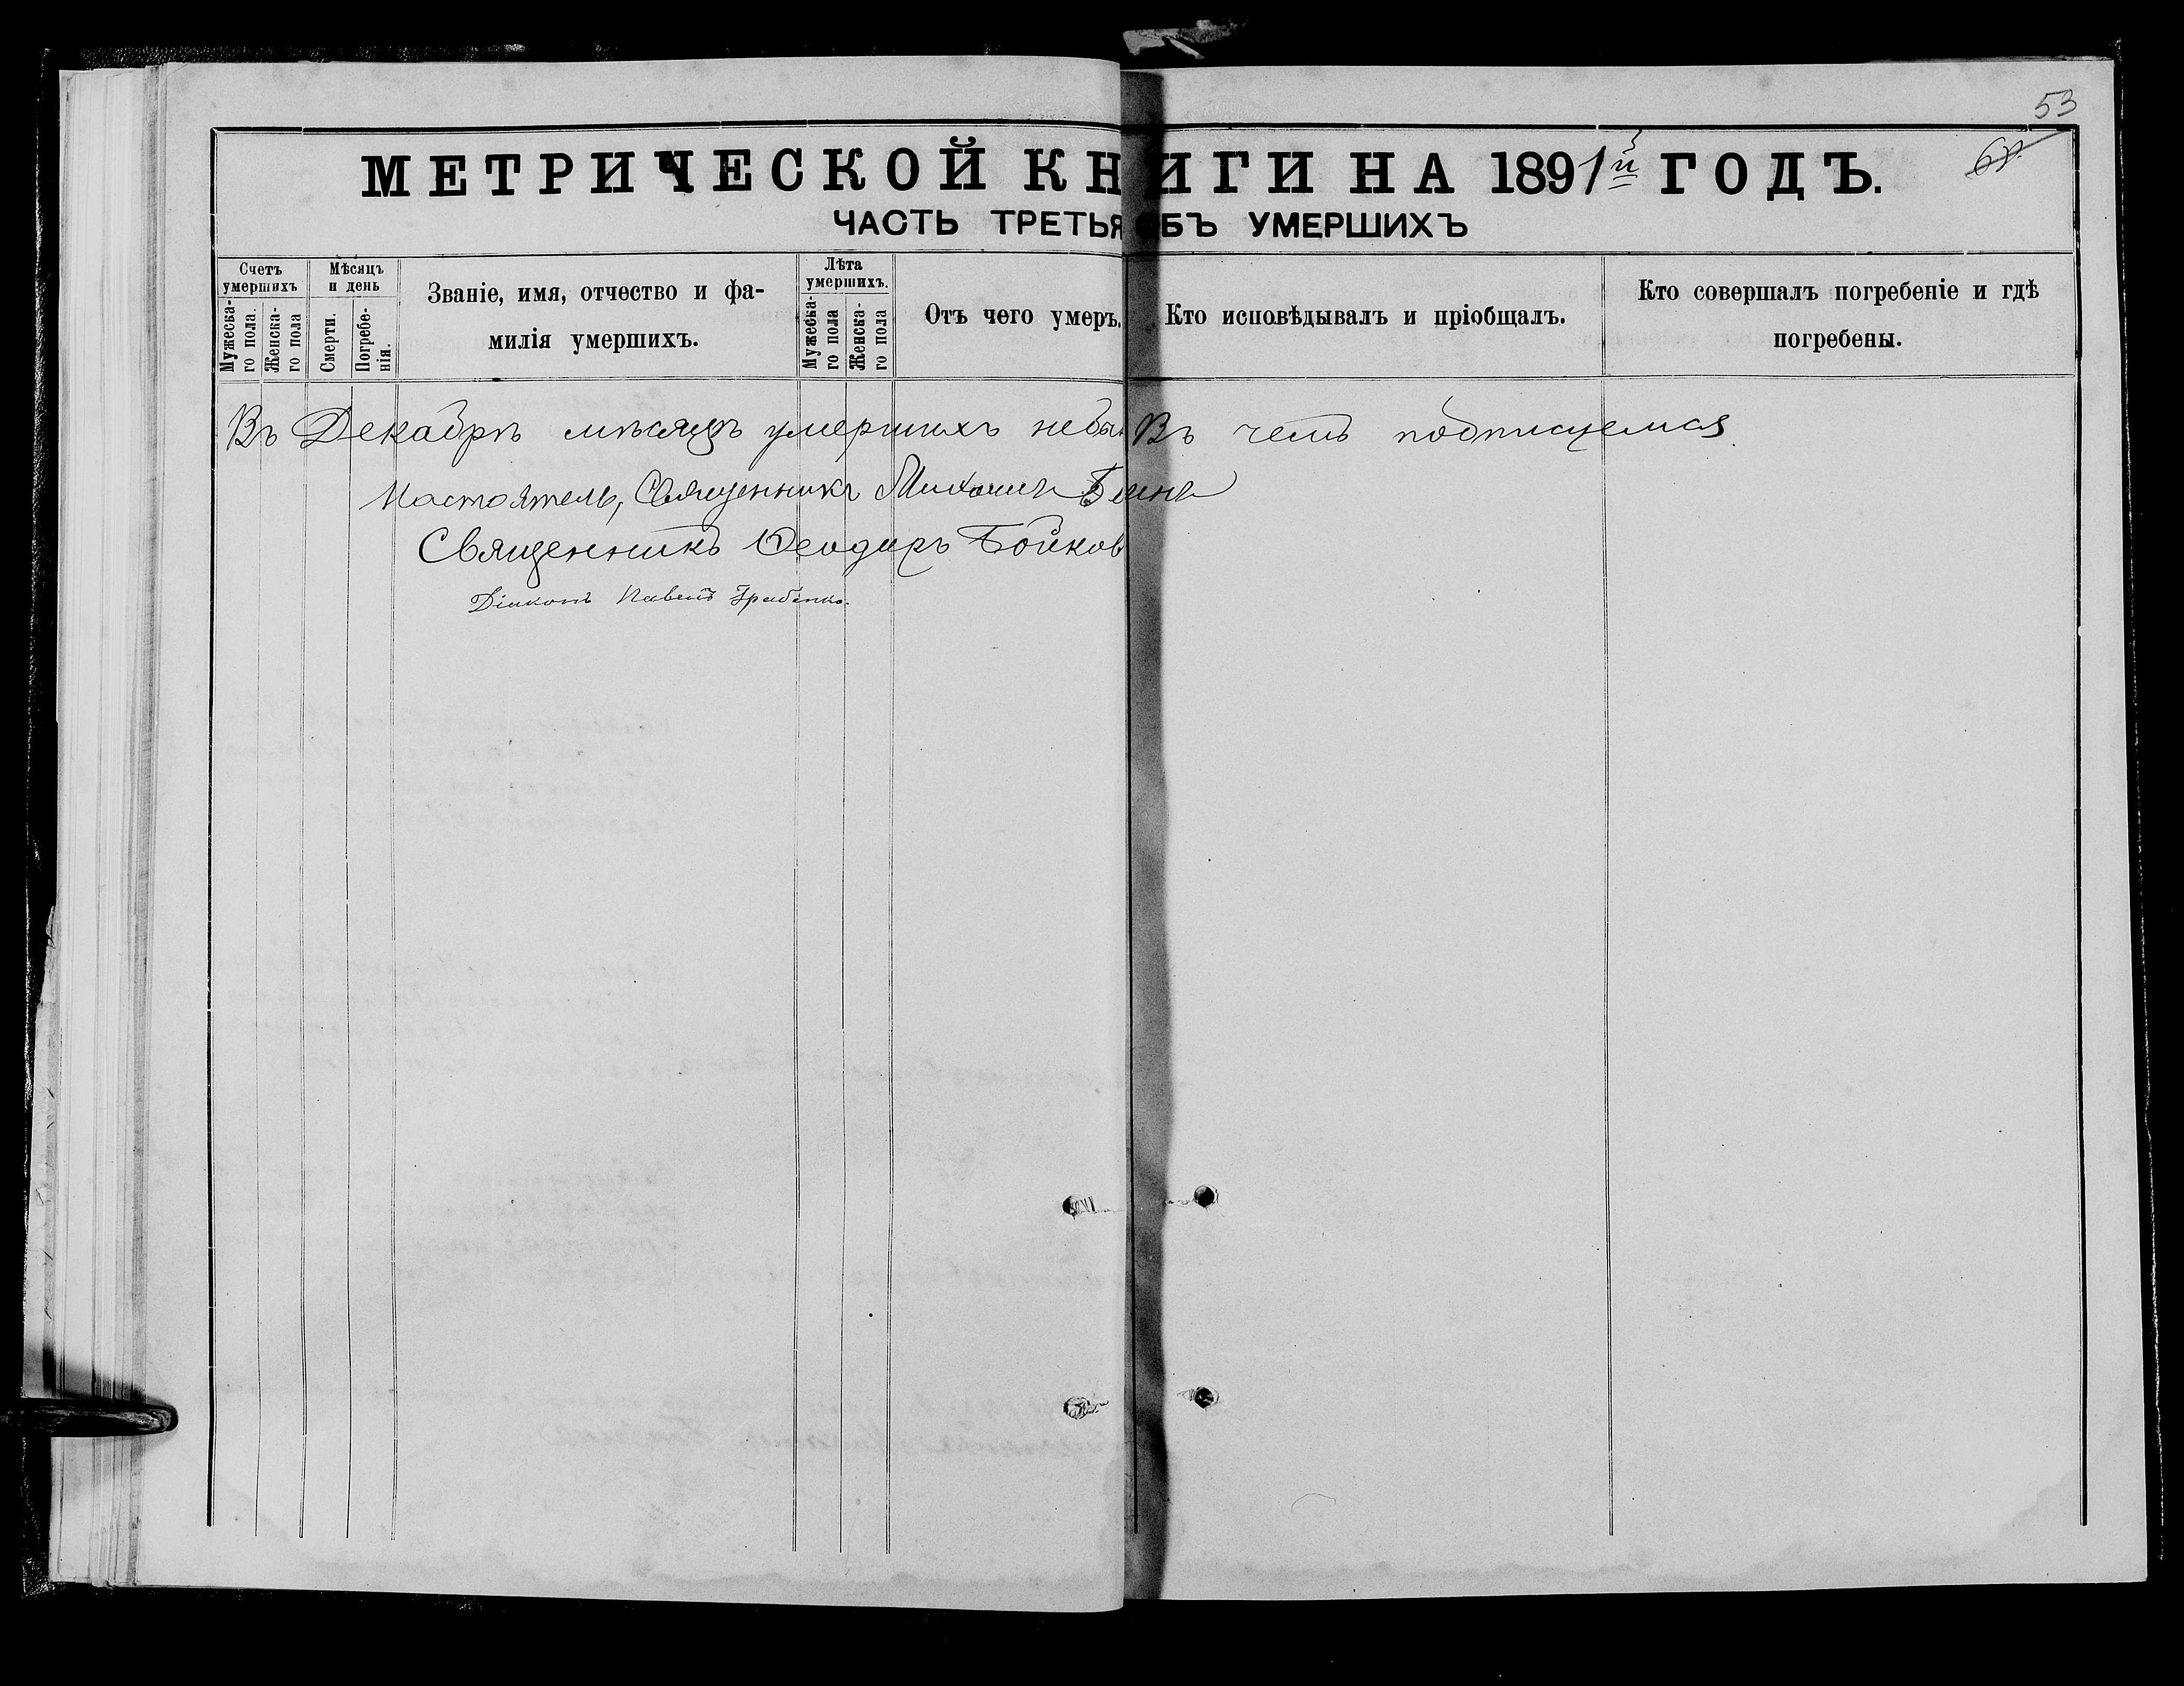 53
МЕТРИЧЕСКОЙ КНИГИ НА 1891й ГОДЪ.
ЧАСТЬ ТРЕТЬЯ ОБЪ УМЕРШИХЪ
Счетъ умершихъ
Мужеска-го пола.
Женска-го пола
Мѣсяцъ и день
Смерти.
Погребе-нія.
Званіе, имя, отчество и фа-
милія умершихъ.
Лѣта умершихъ.
Мужеска-го пола
Женска-го пола
Отъ чего умеръ.
Кто исповѣдывалъ и пріобщалъ.
Кто совершалъ погребеніе и гдѣ
погребены.
Въ Декабрѣ мѣсяцѣ умершихъ небы Въ чемъ подписуемся.
Настоятель, Священникъ Михаилъ
Священникъ Ѳеодоръ Бойков
Діаконъ Павелъ Грабенко.